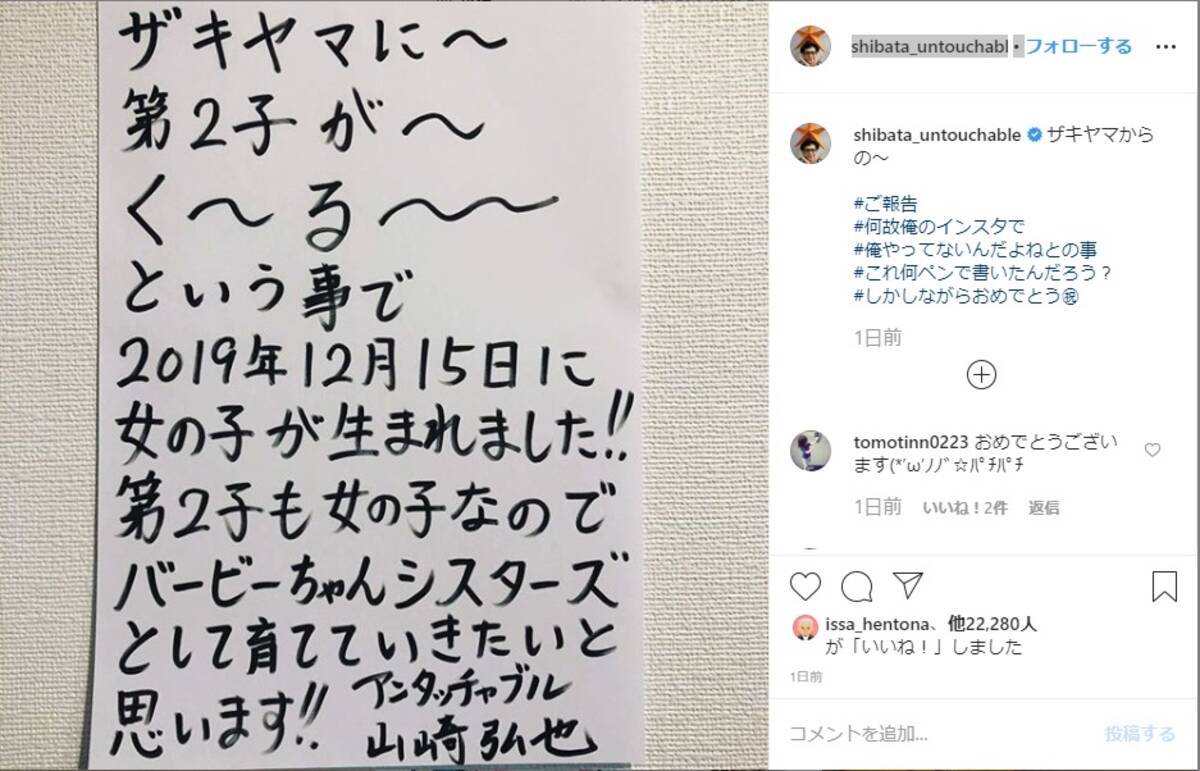 ザキヤマに〜
第2子が〜
く〜る〜〜
という事で
2019年12月15日に
女の子が生まれました!!
第2子も女の子なので
バービーちゃんシスターズ
として育てていきたいと
思います!!
アンタッチャブル
山崎弘也
shibata_untouchabl • フォローする
shibata_untouchable ザキヤマから
の〜
#ご報告
#何故俺のインスタで
#俺やってないんだよねとの事
#これ何ペンで書いたんだろう?
#しかしながらおめでとう㊗
1日前
tomotinn0223 おめでとうござい
ます(*'ω'ﾉﾉﾞ☆ﾊﾟﾁﾊﾟﾁ
1日前 いいね!2件 返信
issa_hentona、他22,280人
が「いいね!」しました
1日前
コメントを追加... 投稿する